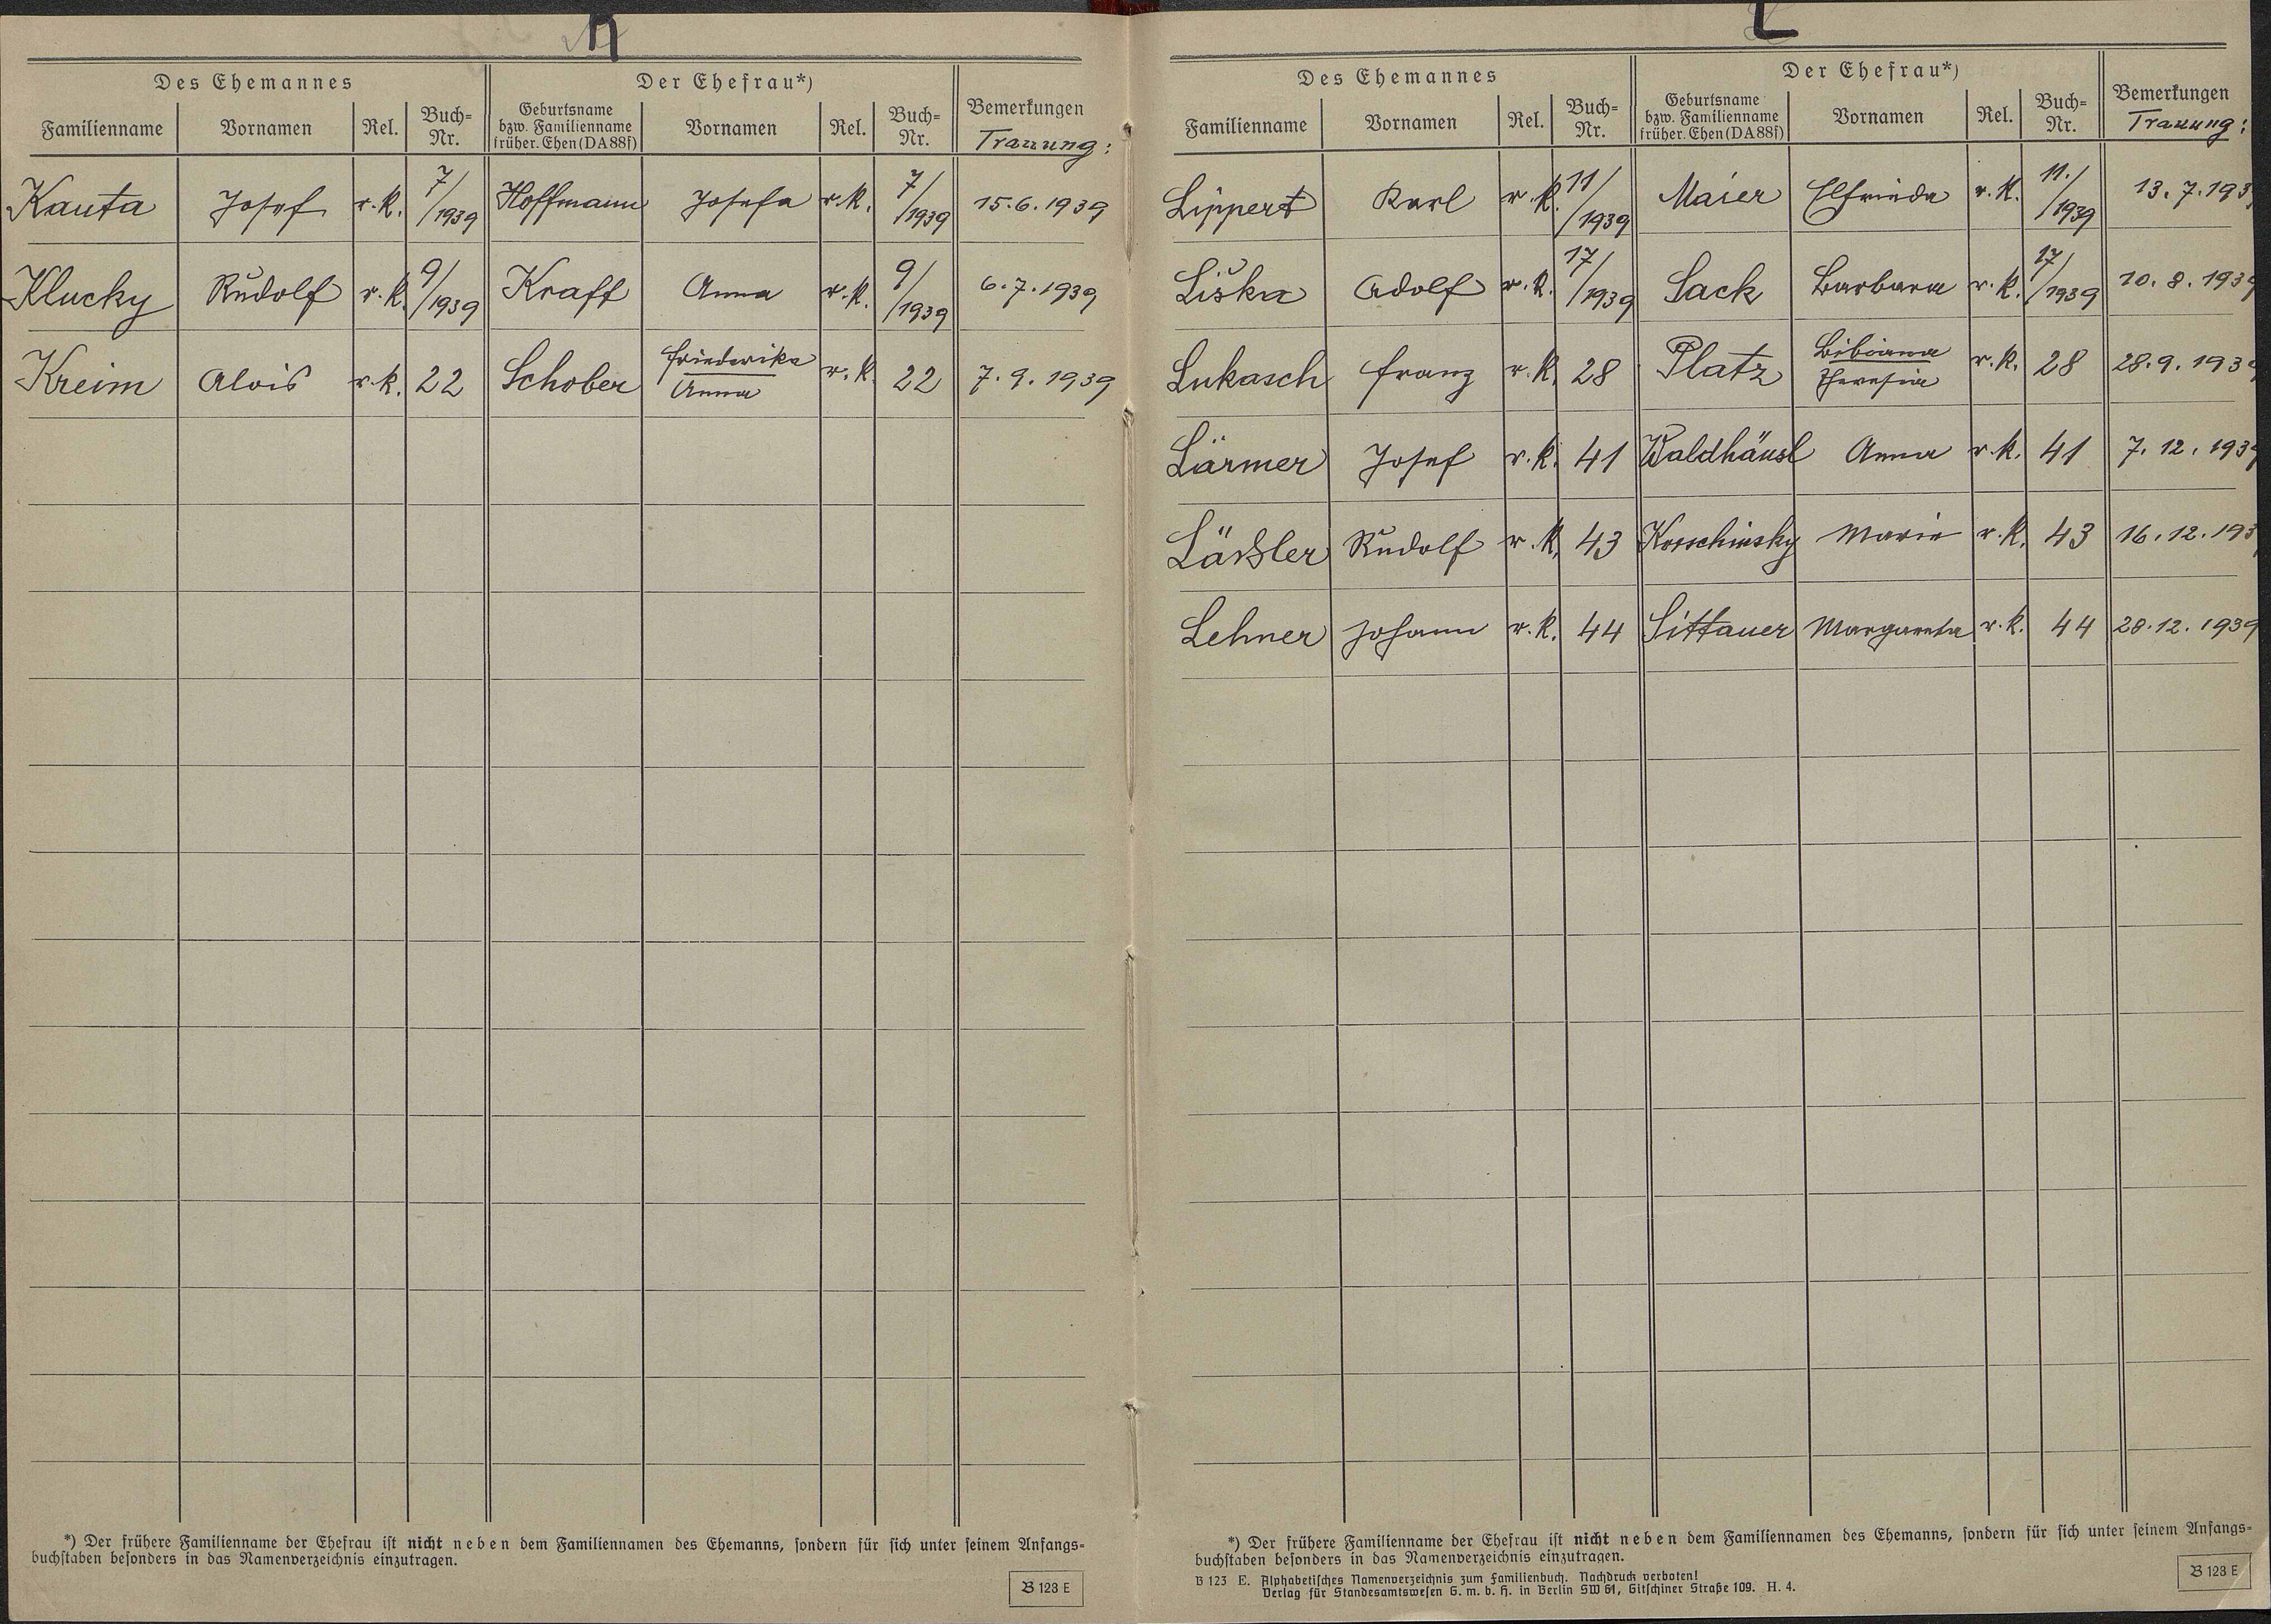 K
Des Ehemannes Der Ehefrau*) Bemerkungen
Familienname Vornamen Rel. Buch-Nr. Geburtsname bzw. Familienname früher. Ehen (DA 88f) Vornamen Rel. Buch-Nr. Trauung:
Kauta Josef r.k. 7/1939 Hoffmann Josefa r.k. 7/1939 15.6.1939
Klucky Rudolf r.k. 9/1939 Kraft Anna r.k. 9/1939 6.7.1939
Kreim Alois r.k. 22 Schober Friederika Anna r.k. 22 7.9.1939
*) Der frühere Familienname der Ehefrau ist nicht neben dem Familiennamen des Ehemanns, sondern für sich unter seinem Anfangs-
buchstaben besonders in das Namenverzeichnis einzutragen.
B 123 E
L
Des Ehemannes Der Ehefrau*) Bemerkungen
Familienname Vornamen Rel. Buch-Nr. Geburtsname bzw. Familienname früher. Ehen (DA 88f) Vornamen Rel. Buch-Nr. Trauung:
Lippert Karl r.k. 11/1939 Maier Elfrieda r.k. 11./1939 13.7.193
Liška Adolf r.k. 17/1939 Sack Barbara r.k. 17/1939 10.8.1939
Lukasch Franz r.k. 28 Platz Bibiana Theresia r.k. 28 28.9.1939
Lärmer Josef r.k. 41 Waldhäusl Anna r.k. 41 7.12.1939
Läßler Rudolf r.k. 43 Koschinsky Marie r.k. 43 16.12.193
Lehner Johann r.k. 44 Sittauer Margareta r.k. 44 28.12.1939
*) Der frühere Familienname der Ehefrau ist nicht neben dem Familiennamen des Ehemanns, sondern für sich unter seinem Anfangs-
buchstaben besonders in das Namenverzeichnis einzutragen.
B 123 E. Alphabetisches Namenverzeichnis zum Familienbuch. Nachdruck verboten!
Verlag für Standesamtswesen G. m. b. H. in Berlin SW 61, Gitschiner Straße 109. H. 4.
B 123 E